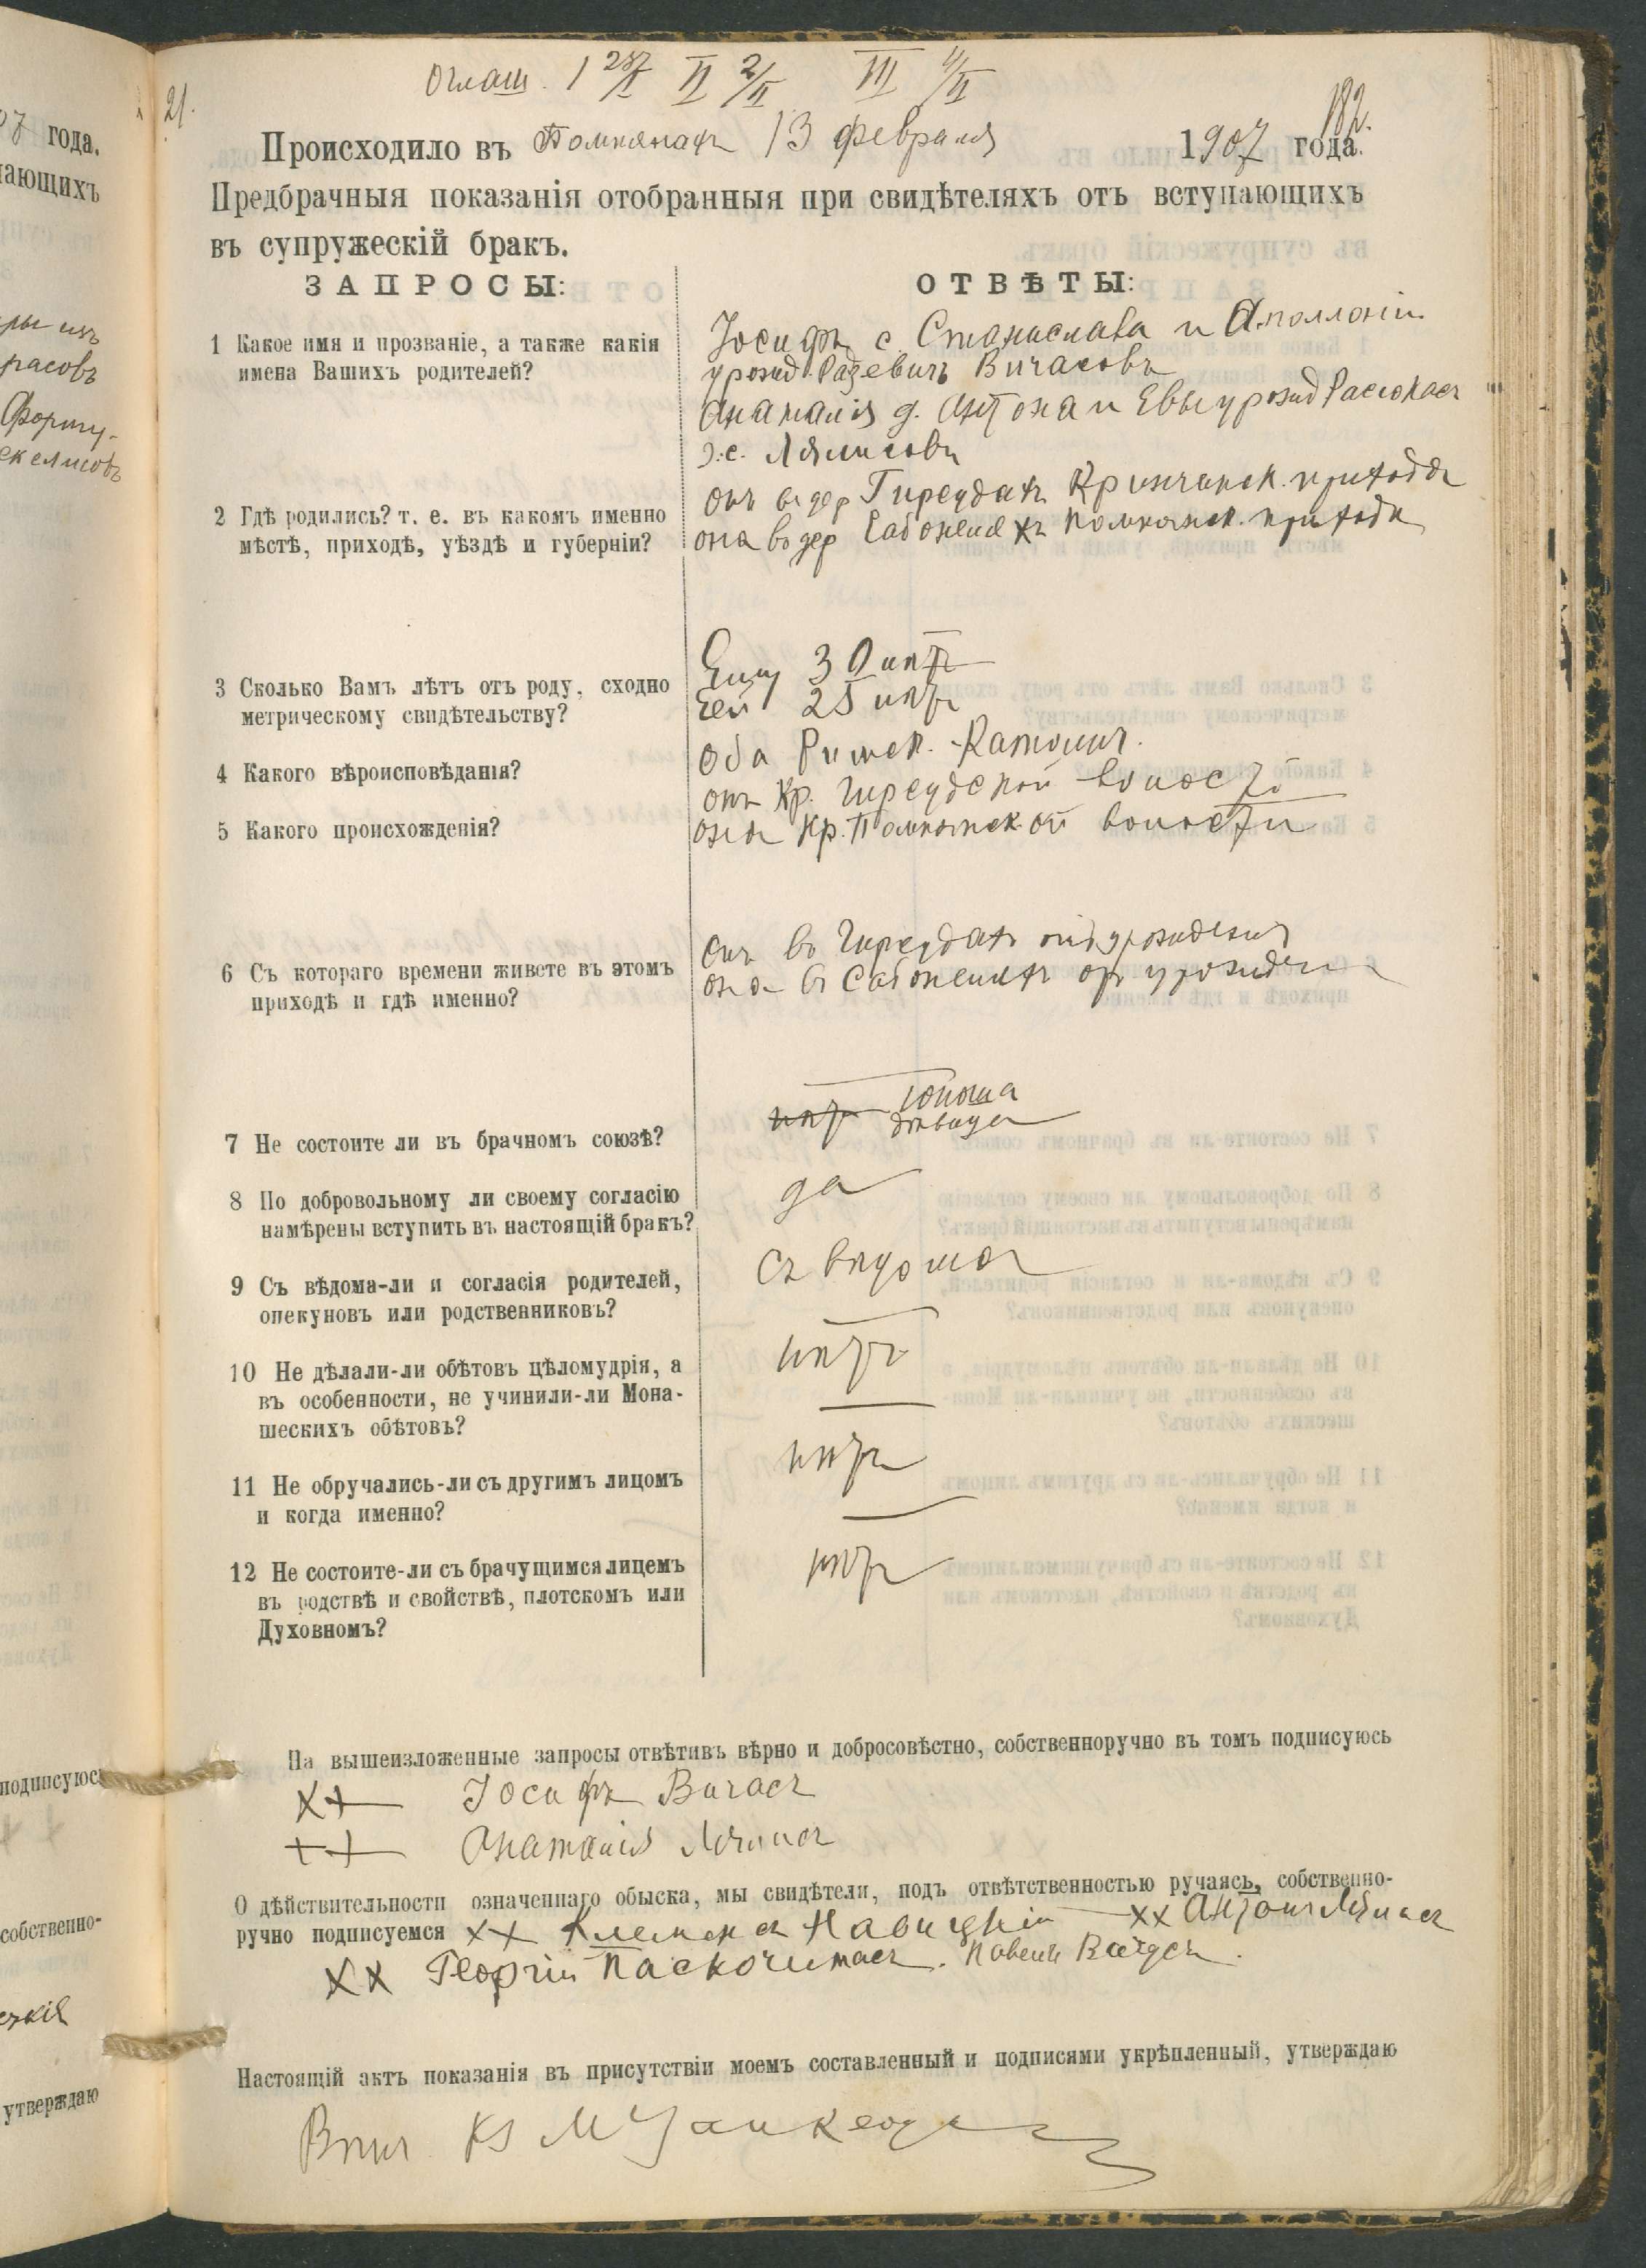 07 года.
ающихъ
расовъ
Форту-
подписуюсь
собственно-
утверждаю
21.
оглаш. I 28/I II 2/II III 4/II
182.
Происходило въ 13 февраля 1907 года.
Предбрачныя показанія отобранныя при свидѣтеляхъ отъ вступающихъ
въ супружескій бракъ.
ЗАПРОСЫ: ОТВѢТЫ:
1 Какое имя и прозваніе, а также какія
имена Вашихъ родителей?
Іосифъ с. Станислава и Аполлоніи
урожд. Вичасовъ
Анаталія д. Антона и Евы урожд
2 Гдѣ родились? т. е. въ какомъ именно
мѣстѣ, приходѣ, уѣздѣ и губерніи?
онъ въ дер Гиреудахъ Кринчинск. прихода
она въ дер прихода
3 Сколько Вамъ лѣтъ отъ роду, сходно
метрическому свидѣтельству?
Ему 30 лѣтъ
Ей 25 лѣтъ
4 Какого вѣроисповѣданія?
Оба Римск. Католич.
5 Какого происхожденія?
онъ Кр. Гиреудской волости
она Кр. волости
6 Съ котораго времени живете въ этомъ
приходѣ и гдѣ именно?
онъ въ Гиреудахъ отъ урожденія
она въ отъ урожден
7 Не состоите ли въ брачномъ союзѣ?
нѣтъ юноша
дѣвица
8 По добровольному ли своему согласію
намѣрены вступить въ настоящій бракъ?
да
9 Съ вѣдома-ли и согласія родителей,
опекуновъ или родственниковъ?
съ вѣдома
10 Не дѣлали-ли обѣтовъ цѣломудрія, а
въ особенности, не учинили-ли Мона-
шескихъ обѣтовъ?
нѣтъ
11 Не обручались-ли съ другимъ лицомъ
и когда именно?
нѣтъ
12 Не состоите-ли съ брачущимся лицемъ
въ родствѣ и свойствѣ, плотскомъ или
Духовномъ?
нѣтъ
На вышеизложенные запросы отвѣтивъ вѣрно и добросовѣстно, собственноручно въ томъ подписуюсь
XX Іосифъ Вичасъ
++ Анаталія
О дѣйствительности означеннаго обыска, мы свидѣтели, подъ отвѣтственностью ручаясь, собственно-
ручно подписуемся XX Клеменсъ Навицкій XX Антонъ
XX Георгій Павелъ
Настоящій актъ показанія въ присутствіи моемъ составленный и подписями укрѣпленный, утверждаю